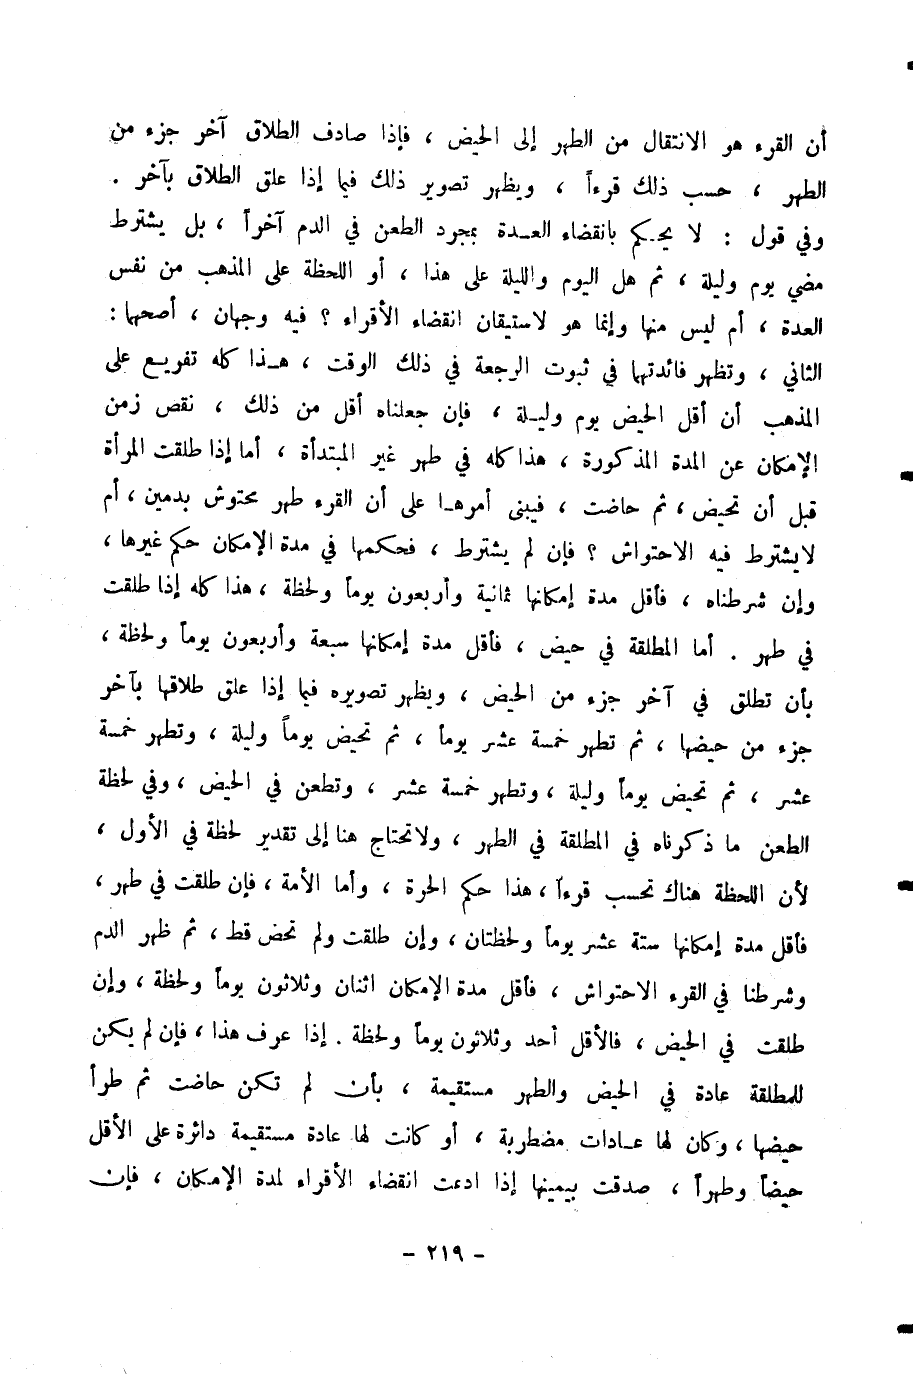 أن القرء هو الانتقال من الطهر إلى الحيض ، فإذا صادف الطلاق آخر جزء من
الطهر ، حسب ذلك قرءاً ، ويظهر تصوير ذلك فيما إذا علق الطلاق بآخر .
وفي قول : لا يحكم بانقضاء العدة بمجرد الطعن في الدم آخراً ، بل يشترط
مضي يوم وليلة ، ثم هل اليوم والليلة على هذا ، أو اللحظة على المذهب من نفس
العدة ، أم ليس منها وإنما هو لاستيقان انقضاء الأقراء ؟ فيه وجهان ، أصحهما :
الثاني ، وتظهر فائدتهما في ثبوت الرجعة في ذلك الوقت ، هذا كله تفريع على
المذهب أن أقل الحيض يوم وليلة ، فإن جعلناه أقل من ذلك ، نقص زمن
الإمكان عن المدة المذكورة ، هذا كله في طهر غير المبتدأة ، أما إذا طلقت المرأة
قبل أن تحيض ، ثم حاضت ، فيبنى أمرها على أن القرء طهر محتوش بدمين ، أم
لا يشترط فيه الاحتواش ؟ فإن لم يشترط ، فحكمها في مدة الإمكان حكم غيرها ،
وإن شرطناه ، فأقل مدة إمكانها ثمانية وأربعون يوماً ولحظة ، هذا كله إذا طلقت
في طهر . أما المطلقة في حيض ، فأقل مدة إمكانها سبعة وأربعون يوماً ولحظة ،
بأن تطلق في آخر جزء من الحيض ، ويظهر تصويره فيما إذا علق طلاقها بآخر
جزء من حيضها ، ثم تطهر خمسة عشر يوماً ، ثم تحيض يوماً وليلة ، وتطهر خمسة
عشر ، ثم تحيض يوماً وليلة ، وتطهر خمسة عشر ، وتطعن في الحيض ، وفي لحظة
الطعن ما ذكرناه في المطلقة في الطهر ، ولا تحتاج هنا إلى تقدير لحظة في الأول ،
لأن اللحظة هناك تحسب قرءاً ، هذا حكم الحرة ، وأما الأمة ، فإن طلقت في طهر ،
فأقل مدة إمكانها ستة عشر يوماً ولحظتان ، وإن طلقت ولم تحض قط ، ثم ظهر الدم
وشرطنا في القرء الاحتواش ، فأقل مدة الإمكان اثنان وثلاثون يوماً ولحظة ، وإن
طلقت في الحيض ، فالأقل أحد وثلاثون يوماً ولحظة . إذا عرف هذا ، فإن لم يكن
للمطلقة عادة في الحيض والطهر مستقيمة ، بأن لم تكن حاضت ثم طرأ
حيضها ، وكان لها عادات مضطربة ، أو كانت لها عادة مستقيمة دائرة على الأقل
حيضاً وطهراً ، صدقت بيمينها إذا ادعت انقضاء الأقراء لمدة الإمكان ، فإن
- ٢١٩ -